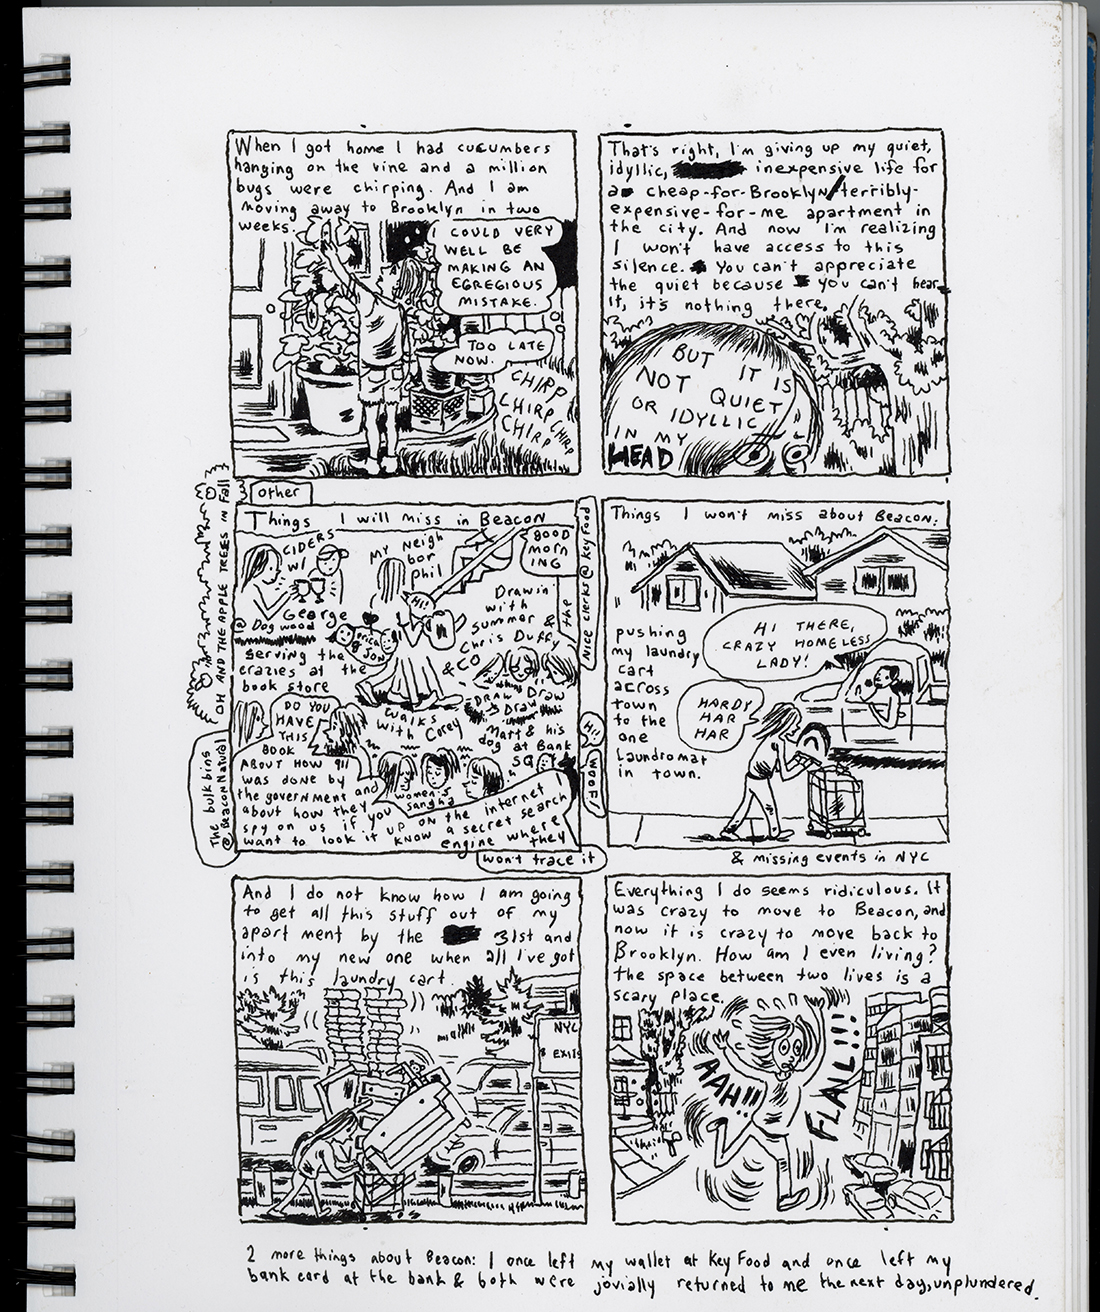 When I got home I had cucumbers
hanging on the vine and a million
bugs were chirping. And I am
moving away to Brooklyn in two
weeks.
I COULD VERY
WELL BE
MAKING AN
EGREGIOUS
MISTAKE.
TOO LATE
NOW.
CHIRP
CHIRP CHIRP
CHIRP
That's right, I'm giving up my quiet,
idyllic, inexpensive life for
a cheap-for-Brooklyn/terribly-
expensive-for-me apartment in
the city. And now I'm realizing
I won't have access to this
silence. You can't appreciate
the quiet because you can't hear
it, it's nothing there,
BUT IT IS
NOT QUIET
OR IDYLLIC
IN MY
HEAD
other
Things I will miss in Beacon
OH AND THE APPLE TREES IN Fall
CIDERS
W/
George
@ Dogwood
MY Neigh
bor
phil
Hi!
good
morn
ING
the
Nice clerks @ Key Food
serving the
crazies at the
book store
erica
& Jon
Drawin
with
summer &
Chris Duffy
& CO
DRAW
Draw
Draw
DO YOU
HAVE
THIS
BOOK
ABOUT HOW 911
was done by
the government and
about how they
spy on us if you
want to look it up on the internet I
know a secret search
engine where
they
won't trace it
walks
with Corey
women's
sangha
Matt & his
dog at Bank
SQ
Hi!
WOOF!
The bulk bins
@ Beacon Natural
Things I won't miss about Beacon:
pushing
my laundry
cart
across
town
to the
one
Laundromat
in town.
HI THERE,
CRAZY HOMELESS
LADY!
HARDY
HAR
HAR
& missing events in NYC
And I do not know how I am going
to get all this stuff out of my
apartment by the 31st and
into my new one when all I've got
is this laundry cart.
NYC
8 EXITS
Everything I do seems ridiculous. It
was crazy to move to Beacon, and
now it is crazy to move back to
Brooklyn. How am I even living?
the space between two lives is a
scary place.
AAH!!!
FLAIL!!!
2 more things about Beacon: I once left my wallet at Key Food and once left my
bank card at the bank & both were jovially returned to me the next day, unplundered.